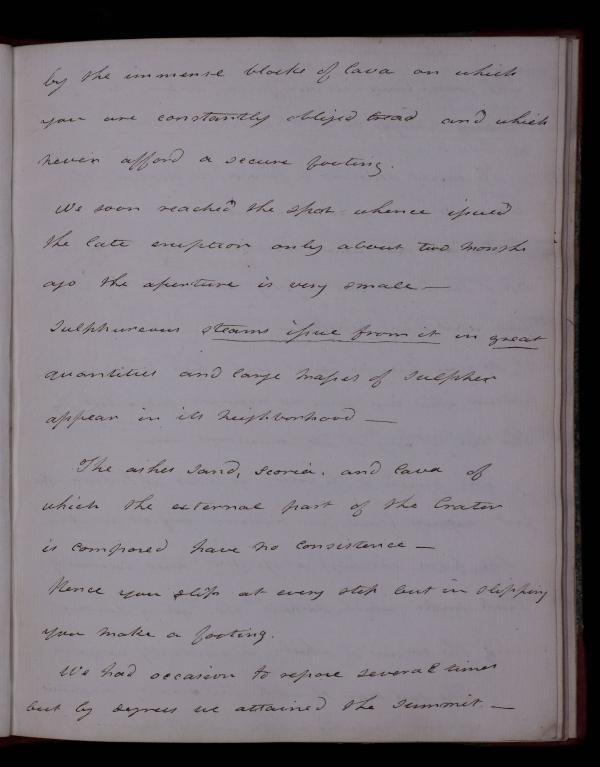 by the immense blocks of lava on which
you are constantly obliged tread and which
never afford a secure footing.
We soon reached the spot whence issued
the late eruption only about two months
ago the aperture is very small —
Sulphureous steams issue from it in great
quantities and large masses of sulpher
appear in its neighborhood —
The ashes sand, scoria. and lava of
which the external part of the Crater
is composed have no consistence —
Hence you slip at every step but in slipping
you make a footing.
We had occasion to repose several times
but by degrees we attained the summit. —